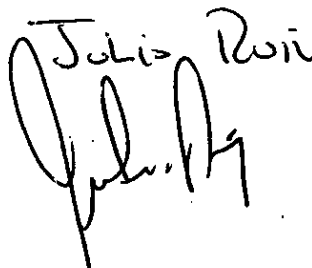 Julio Rui